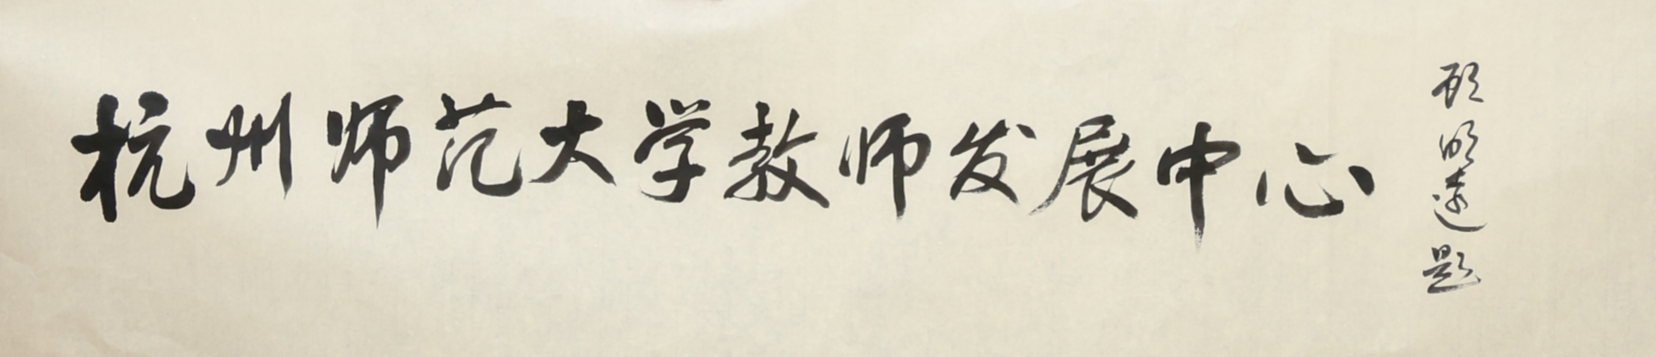 杭州师范大学教师发展中心
顾明远题